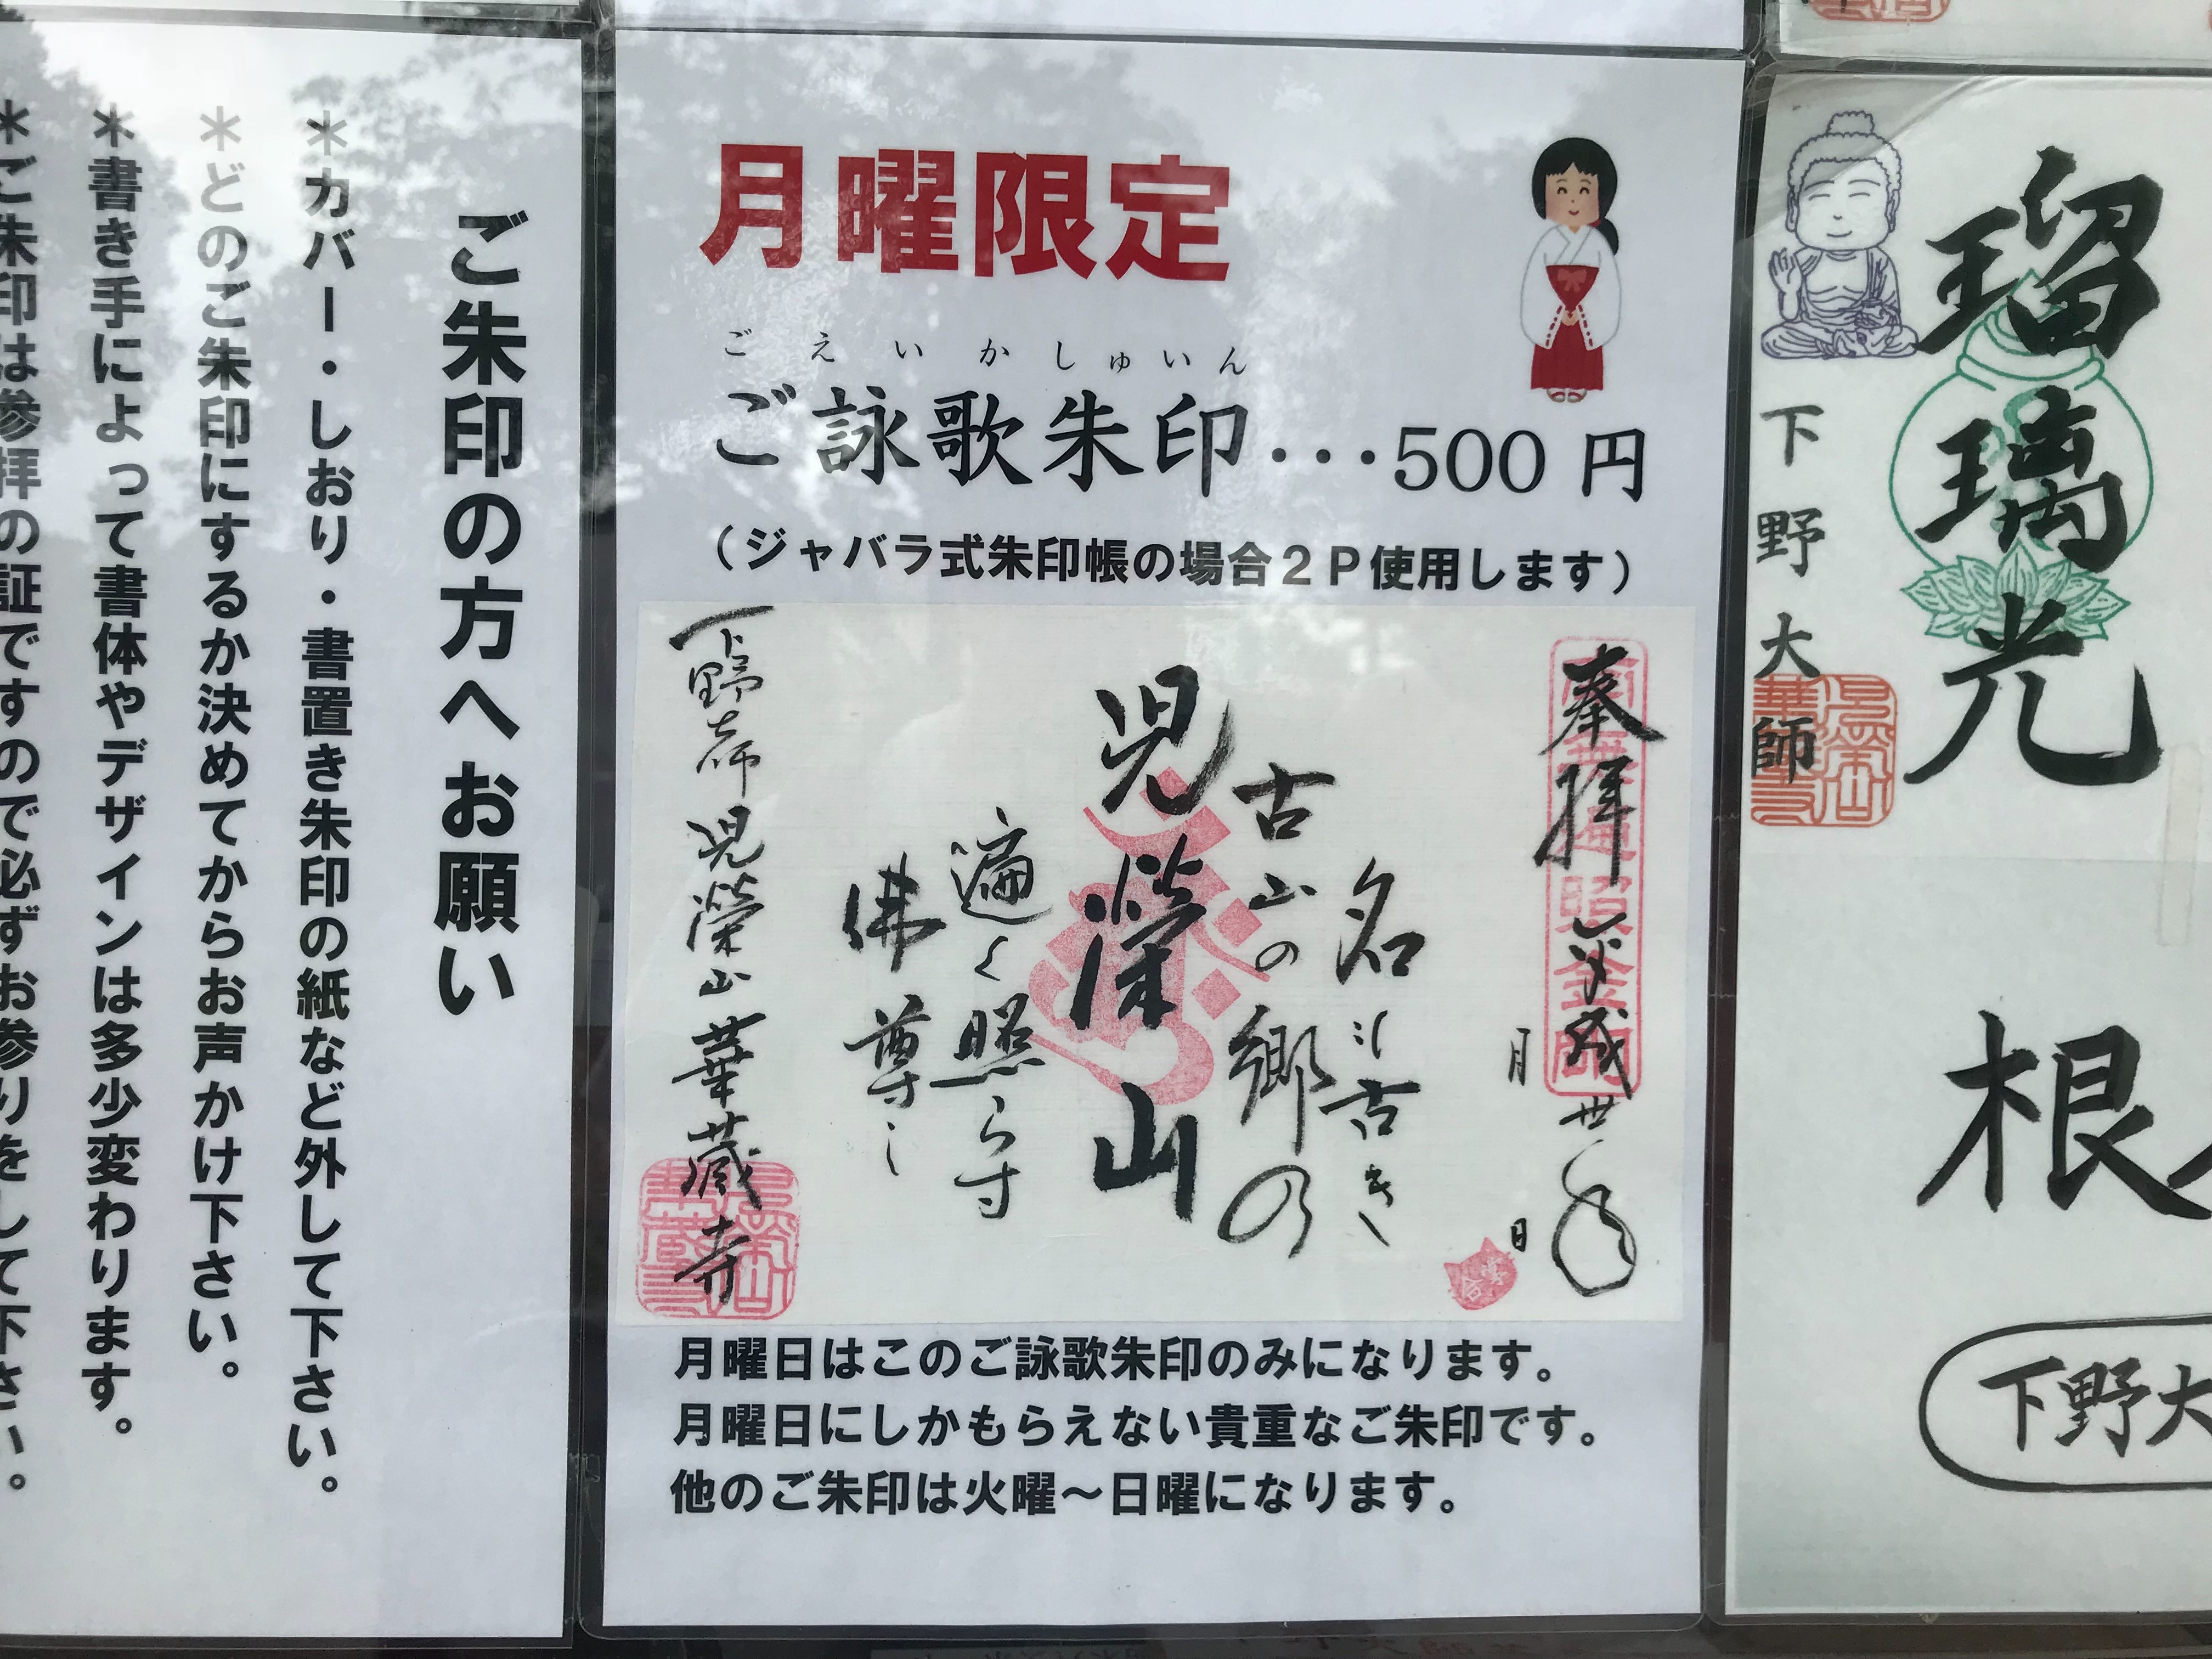 ご朱印の方へお願い
＊カバー・しおり・書置き朱印の紙など外して下さい。
＊どのご朱印にするか決めてからお声かけ下さい。
＊書き手によって書体やデザインは多少変わります。
＊ご朱印は参拝の証ですので必ずお参りをして下さい。
月曜限定
ごえいかしゅいん
ご詠歌朱印・・・500円
（ジャバラ式朱印帳の場合２Ｐ使用します）
奉拝 平成廿年
月 日
名に古き
古山の郷の
児榮山
遍く照らす
佛尊し
下野大師 児榮山 華蔵寺
月曜日はこのご詠歌朱印のみになります。
月曜日にしかもらえない貴重なご朱印です。
他のご朱印は火曜～日曜になります。
瑠璃光
下野大師
根
下野大